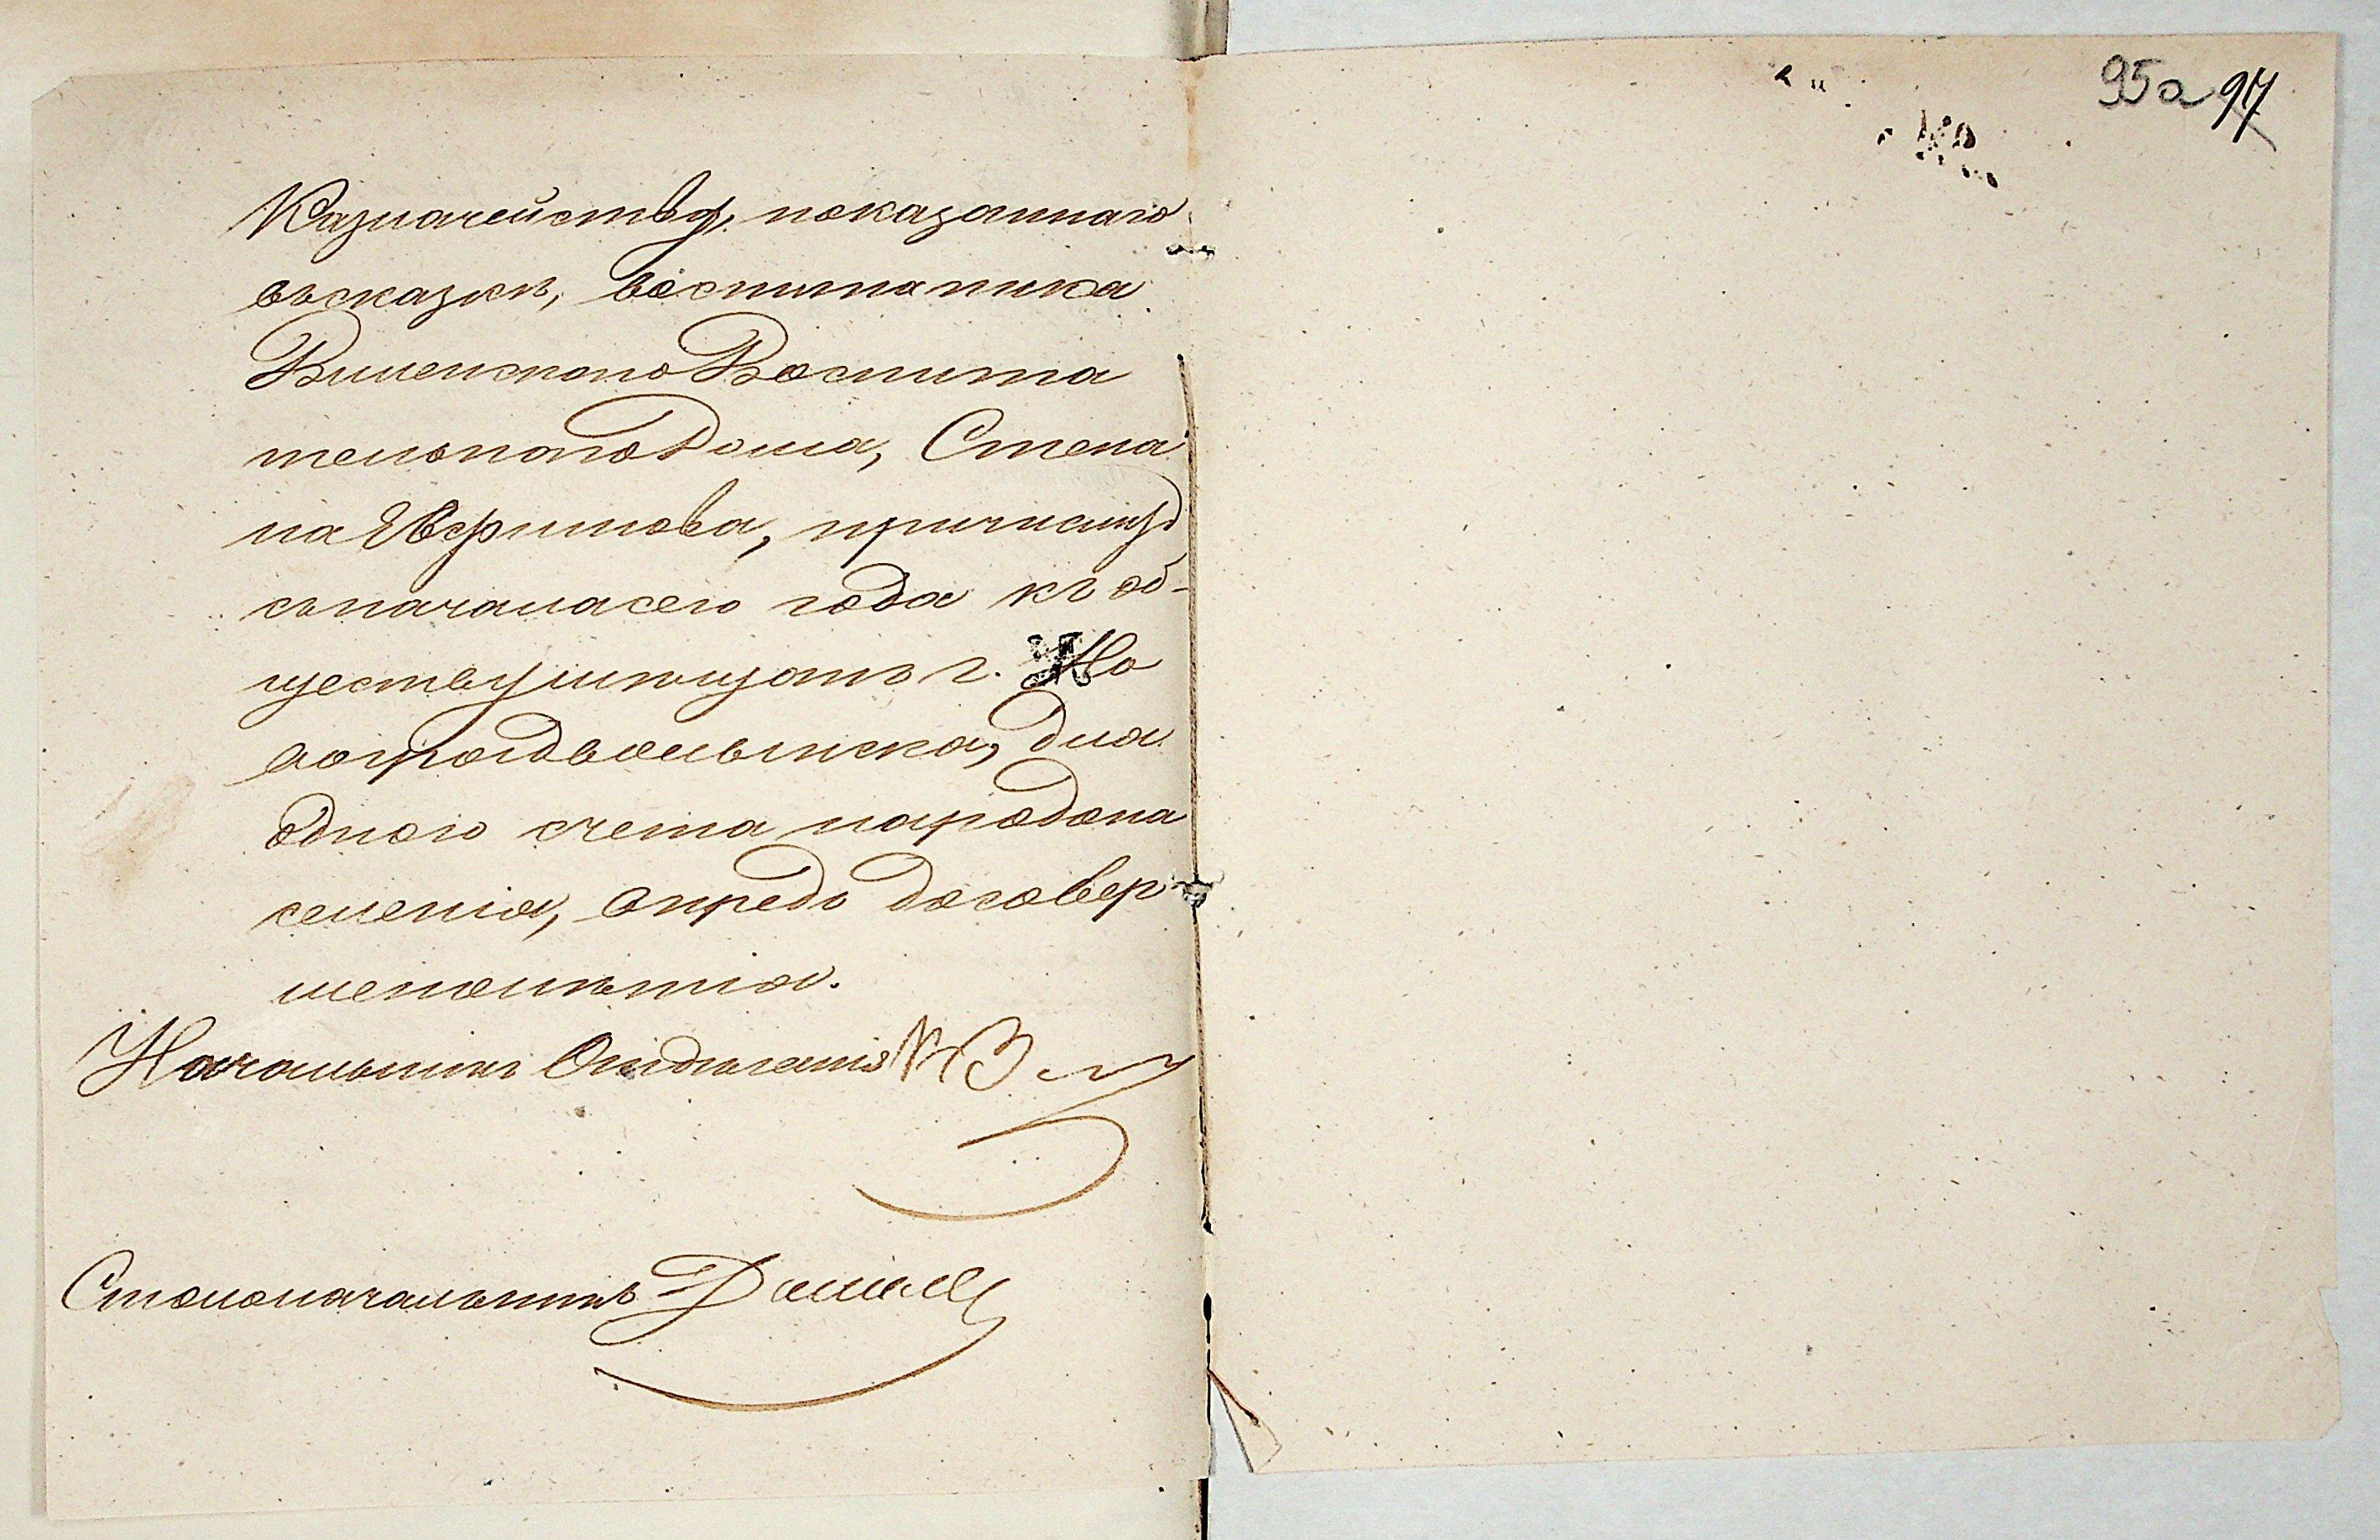 95а 97
Казначейству, показаннаго
въ сказкѣ, воспитаника
Виленскаго Воспита
тельнаго Дома, Степа
на Ефимова, причислить
съ начала сего года къ об-
ществу мѣщанъ г. Но
воградволынска, для
однаго счета народона
селенія, впредь до совер
шенолѣтія.
Начальникъ Отдѣленія
Столоначальникъ